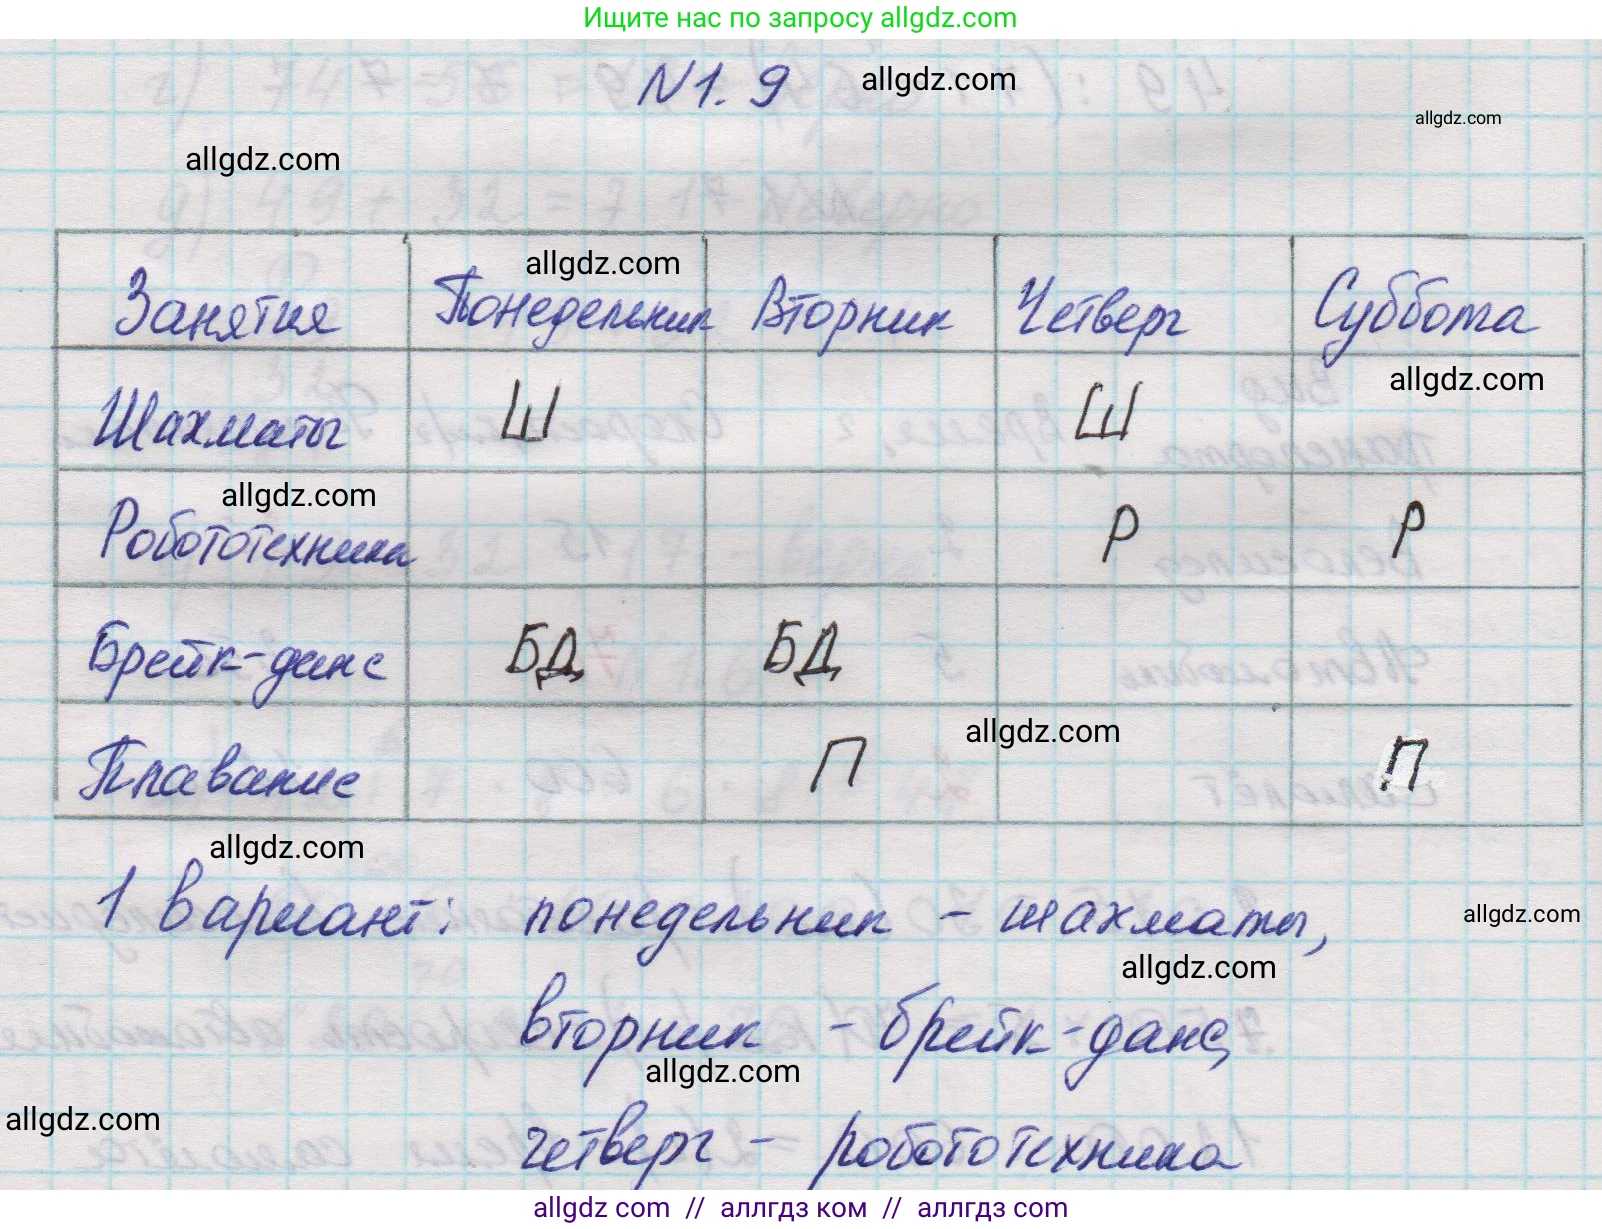 Ищите нас по запросу allgdz.com
N1.9
allgdz.com
allgdz.com
allgdz.com
allgdz.com
Занятия Понедельник Вторник Четверг Суббота
allgdz.com
Шахматы Ш Ш
allgdz.com
Робототехника Р Р
Брейк-данс БД БД
allgdz.com
Плавание П П
allgdz.com
1 вариант: понедельник - шахматы,
allgdz.com
allgdz.com
вторник - брейк-данс,
allgdz.com
allgdz.com
четверг - робототехника
allgdz.com // аллгдз ком // аллгдз com